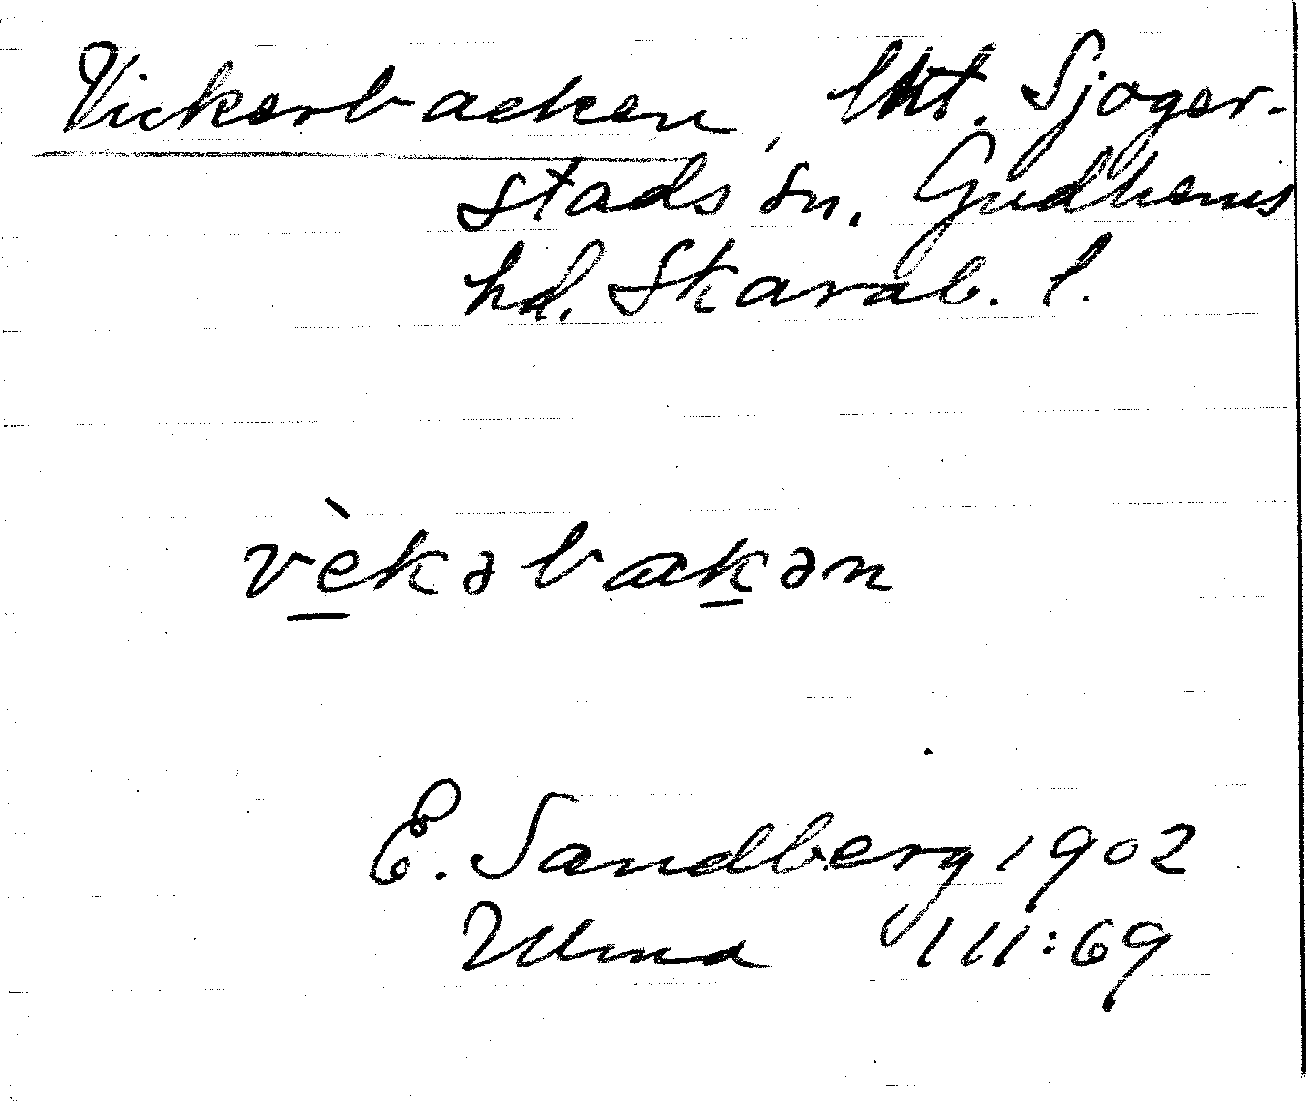 Vickerbacken, lht. Sjoger-
stads sn. Gudhems
hd. Skarab. l.
vèkəbakən
E. Sandberg 1902
111:69